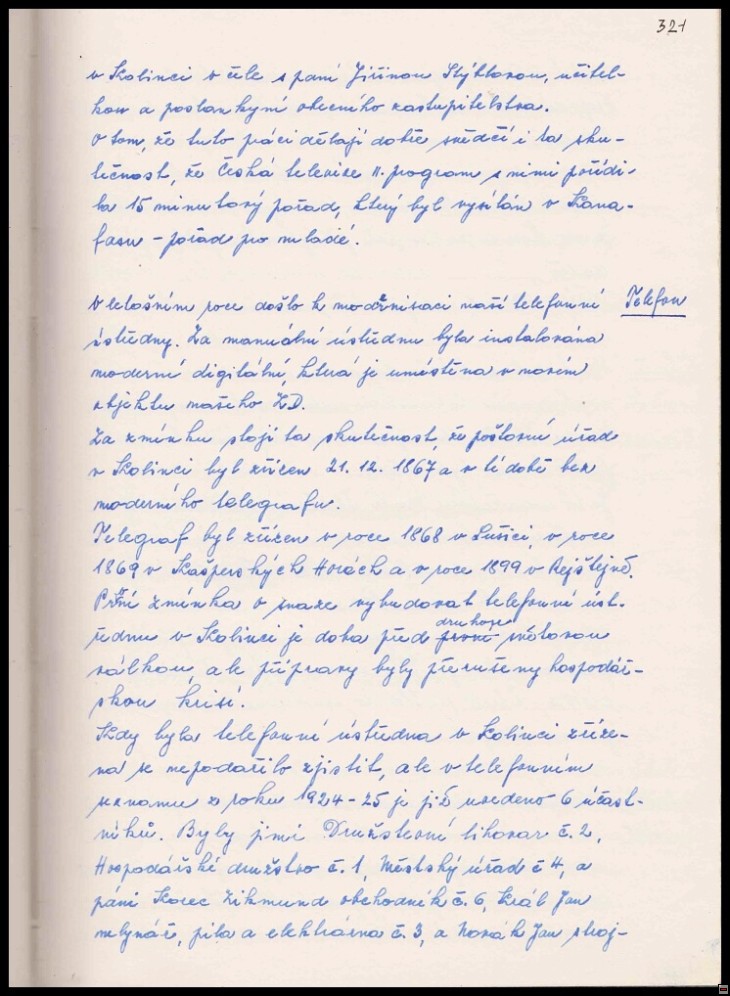 321
v Kolinci v čele s paní Jiřinou Stýblovou, učitel-
kou a poslankyní obecného zastupitelstva.
O tom, že tuto práci dělají dobře svědčí i ta sku-
tečnost, že Česká televize II. program s nimi pořídi-
la 15 minutový pořad, který byl vysílán v Kana-
fasu - pořad pro mladé.
V letošním roce došlo k modernisaci naší telefonní
Telefon
ústředny. Za manuální ústřednu byla instalována
moderní digitální, která je umístěna v novém
objektu našeho ZD.
Za zmínku stojí ta skutečnost, že poštovní úřad
v Kolinci byl zřízen 21. 12. 1867 a v té době bez
moderního telegrafu.
Telegraf byl zřízen v roce 1868 v Sušici, v roce
1869 v Kašperských Horách a v roce 1899 v Rejštejně.
První zmínka o snaze vybudovat telefonní úst-
druhou
řednu v Kolinci je doba před první světovou
válkou, ale přípravy byly přerušeny hospodář-
skou krisí.
Kdy byla telefonní ústředna v Kolinci zříze-
na se nepodařilo zjistit, ale v telefonním
seznamu z roku 1924-25 je již uvedeno 6 účast-
níků. Byly jimi Družstevní lihovar č. 2,
Hospodářské družstvo č. 1, Městský úřad č 4, a
páni Korec Zikmund obchodník č. 6, Král Jan
mlynář, pila a elektrárna č. 3, a Novák Jan stroj-